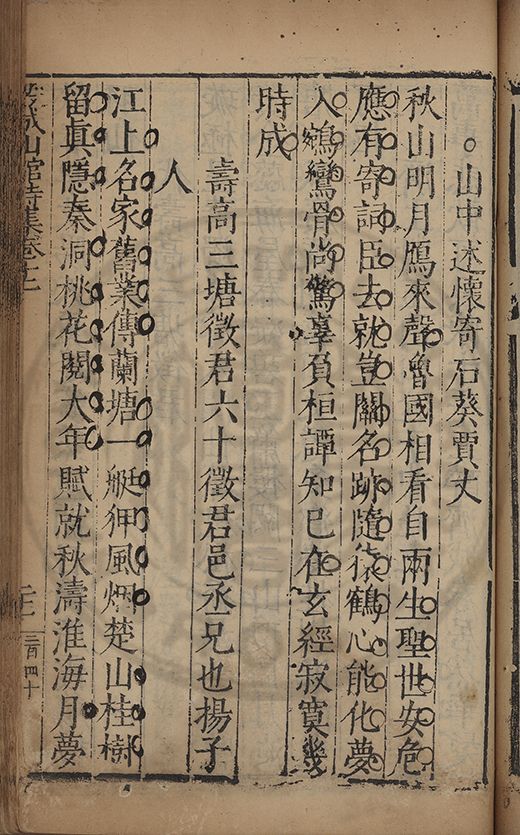 山中述懷寄石葵賈丈
秋山明月鴈來聲魯國相看自兩生聖世安危
應有寄詞臣去就豈關名跡隨猿鶴心能化夢
入鵷鸞骨尚驚辜負桓譚知己在玄經寂寞幾
時成
壽高三塘徵君六十徵君邑丞兄也揚子
人
江上名家舊業傳蘭塘一艇狎風烟楚山桂樹
留眞隱秦洞桃花閱大年賦就秋濤淮海月夢
山館詩集卷十二
三百四十